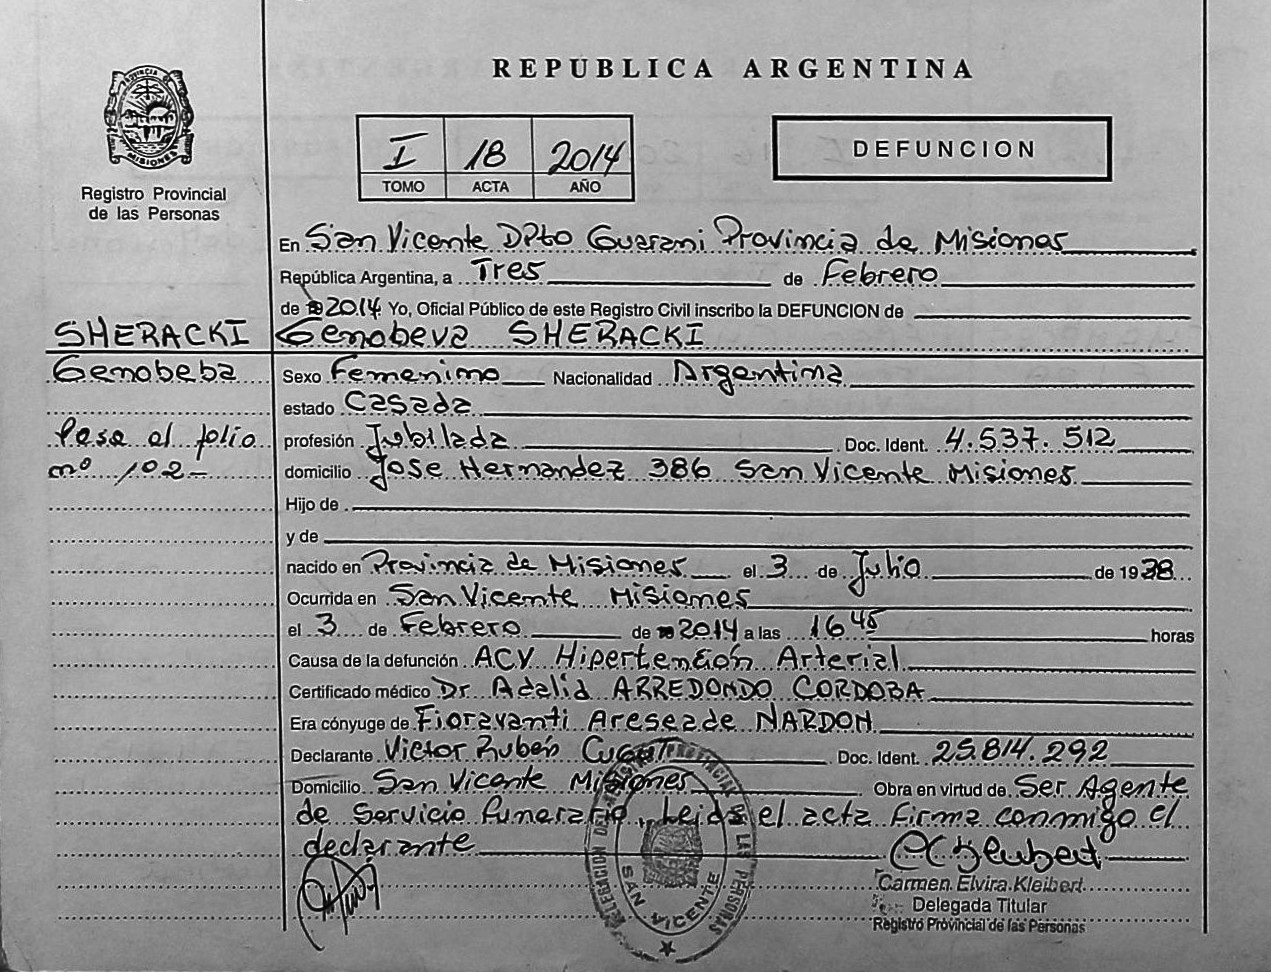 REPUBLICA ARGENTINA
PROVINCIA DE MISIONES
Registro Provincial
de las Personas
I 18 2014
TOMO ACTA AÑO
DEFUNCION
En San Vicente Dpto Guarani Provincia de Misiones
República Argentina, a Tres de Febrero
de 2014 Yo, Oficial Público de este Registro Civil inscribo la DEFUNCION de
SHERACKI
Genobeva SHERACKI
Genobeba
Sexo Femenino Nacionalidad Argentina
estado Casada
Pasa al folio
nº 102-
profesión Jubilada Doc. Ident. 4.537.512
domicilio Jose Hernandez 386 San Vicente Misiones
Hijo de
y de
nacido en Provincia de Misiones el 3 de Julio de 1938
Ocurrida en San Vicente Misiones
el 3 de Febrero de 2014 a las 16 45 horas
Causa de la defunción ACV Hipertención Arterial
Certificado médico Dr Adalid ARREDONDO CORDOBA
Era cónyuge de Fioravanti Areseade NARDON
Declarante Victor Rubén Doc. Ident. 25.814.292
Domicilio San Vicente Misiones Obra en virtud de Ser Agente
de Servicio Funerario, Leida el acta Firma conmigo el
declarante
Carmen Elvira Kleibert
Delegada Titular
Registro Provincial de las Personas
DELEGACION DE REGISTRO PROVINCIAL DE LAS PERSONAS
SAN VICENTE